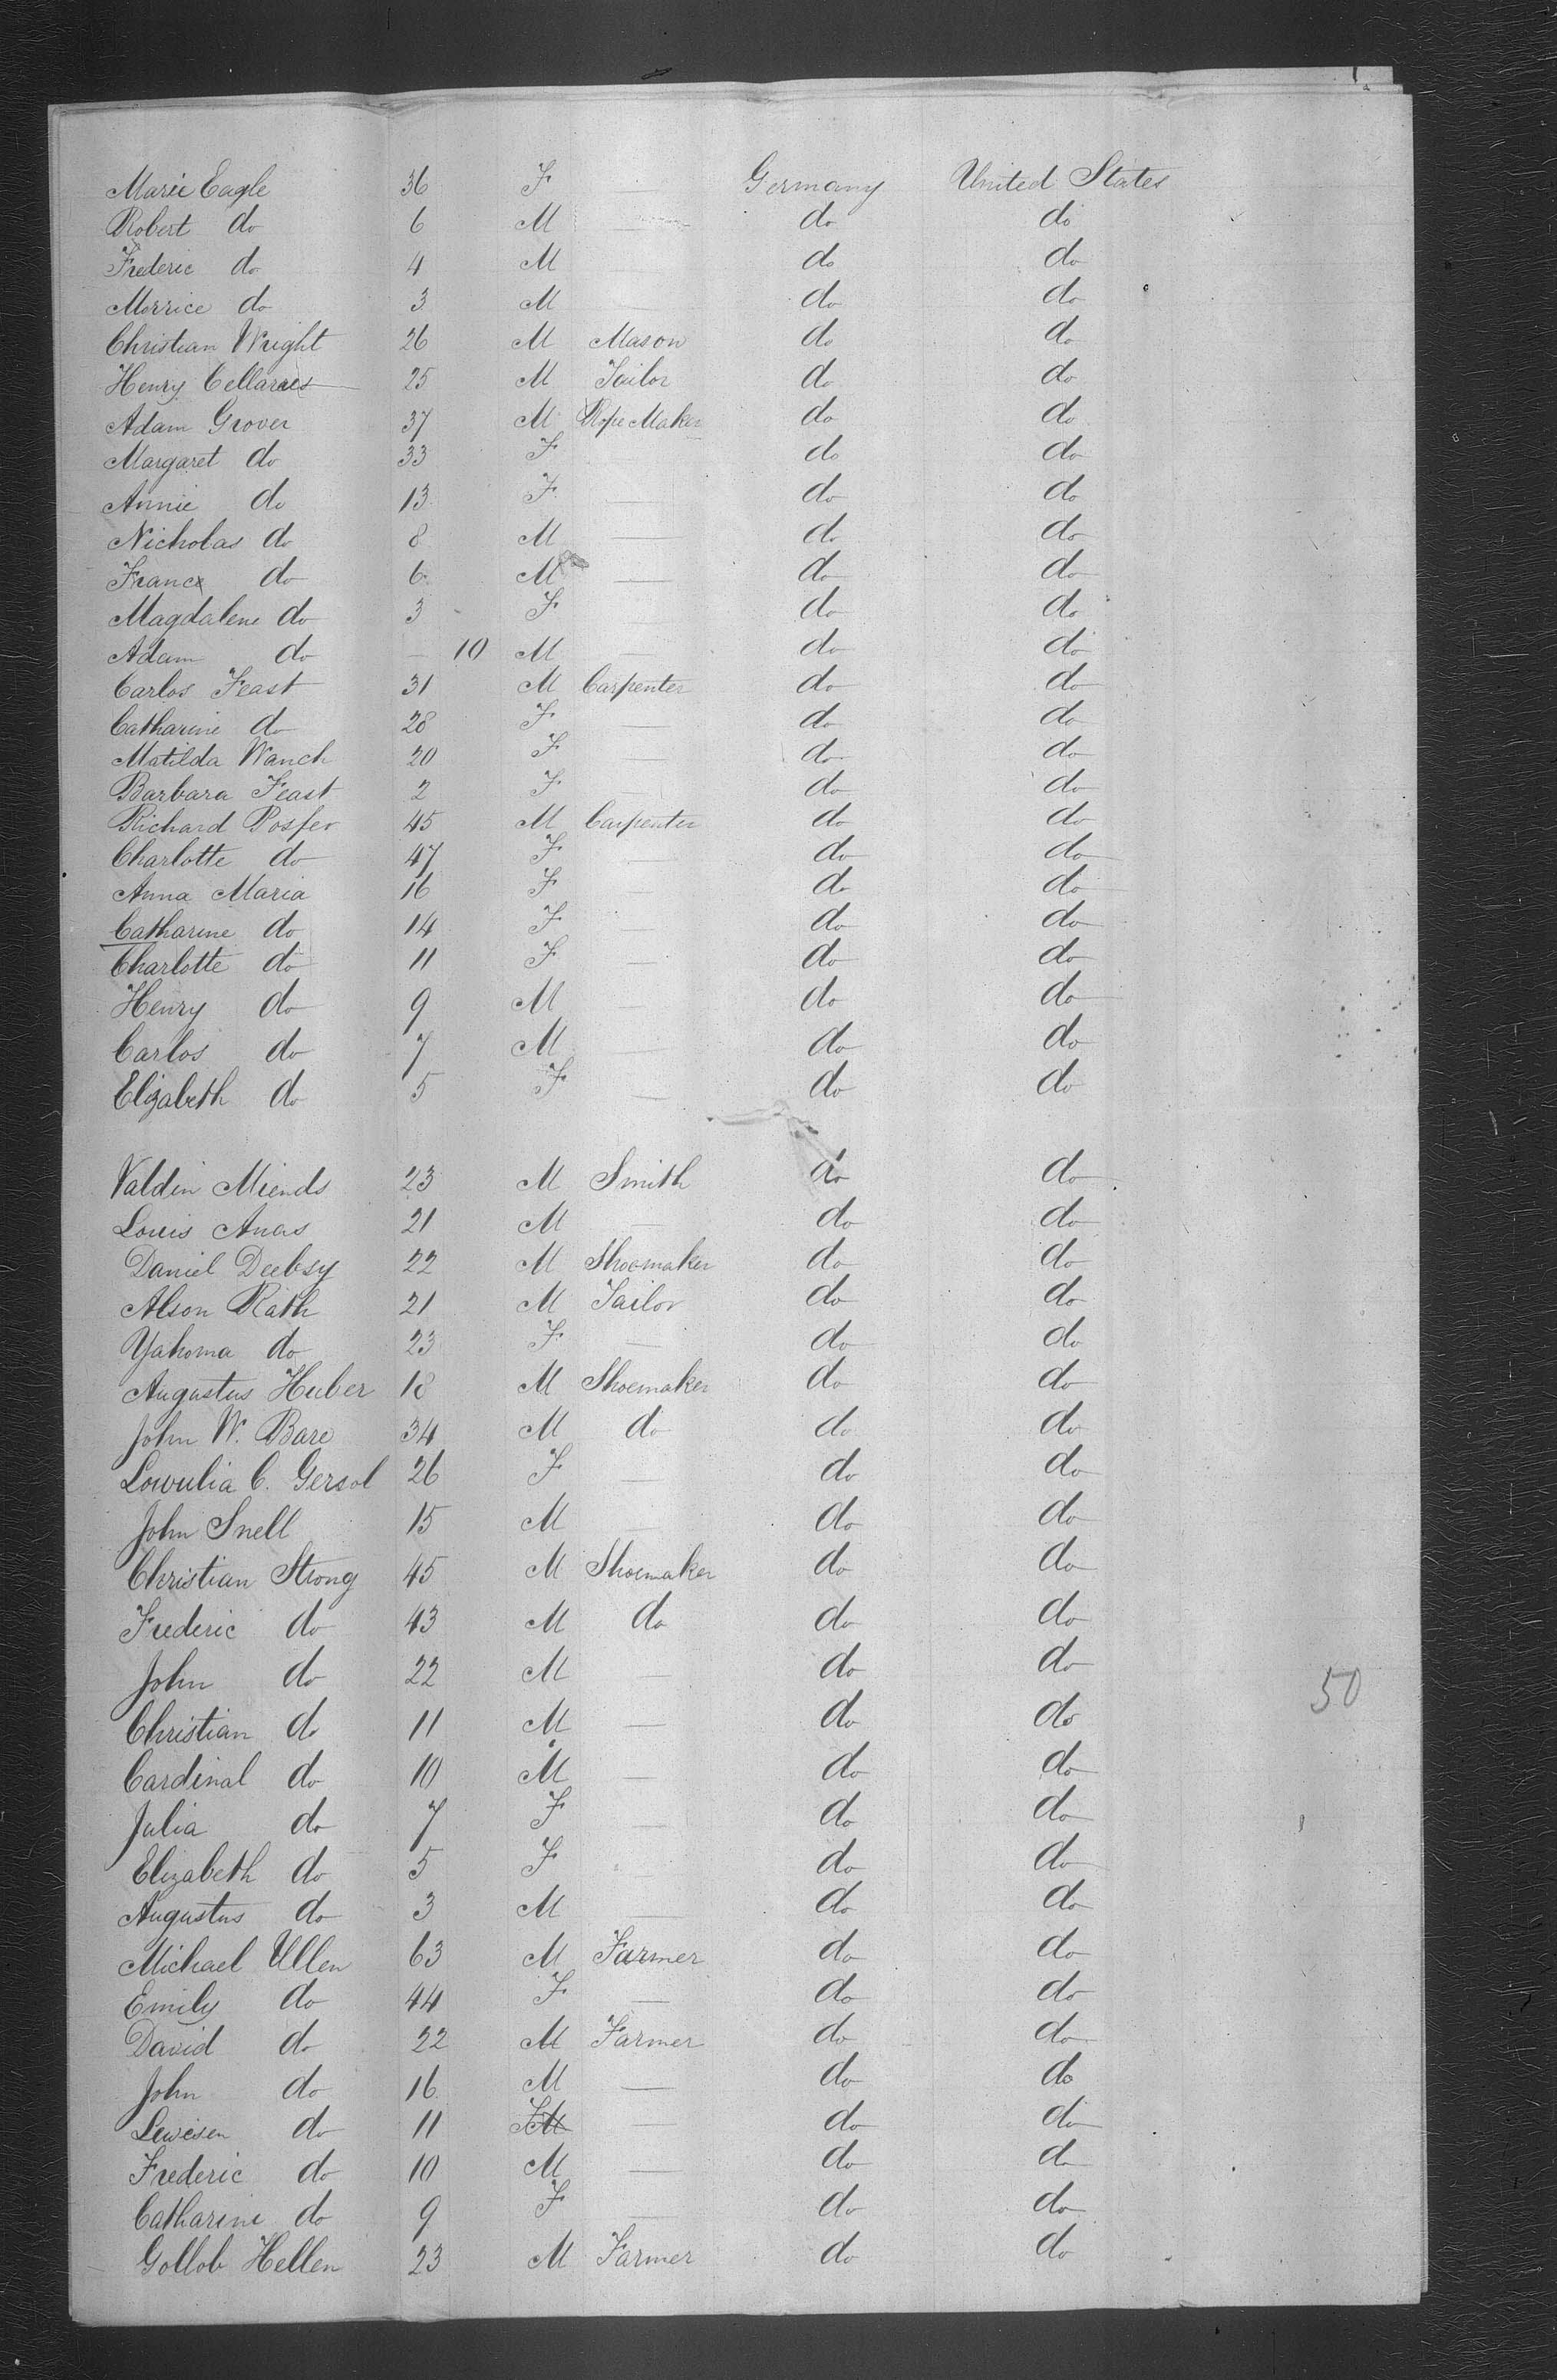 Marie Eagle 36 F — Germany United States
Robert do 6 M — do do
Frederic do 4 M do do
Morrice do 3 M — do do
Christian Wright 26 M Mason do do
Henry 25 M Tailor do do
Adam Grover 37 M Rope Maker do do
Margaret do 33 F do do
Annie do 13 F — do do
Nicholas do 8 M — do do
Franc do 6 M — do do
Magdalene do 3 F — do do
Adam do — 10 M — do do
Carlos Feast 31 M Carpenter do do
Catharine do 28 F — do do
Matilda Wanch 20 F — do do
Barbara Feast 2 F — do do
Richard Posfer 45 M Carpenter do do
Charlotte do 47 F — do do
Anna Maria 16 F — do do
Catharine do 14 F — do do
Charlotte do 11 F — do do
Henry do 9 M — do do
Carlos do 7 M — do do
Elizabeth do 5 F — do do
Valdin Miends 23 M Smith do do
Louis Anas 21 M — do do
Daniel Deebsy 22 M Shoemaker do do
Alson Rath 21 M Tailor do do
Yahoma do 23 F — do do
Augustus Huber 18 M Shoemaker do do
John W. Bare 34 M do do do
Lowulia C. Gersol 26 F — do do
John Snell 15 M — do do
Christian Strong 45 M Shoemaker do do
Frederic do 43 M do do do
John do 22 M — do do
50
Christian do 11 M — do do
Cardinal do 10 M — do do
Julia do 7 F — do do
Elizabeth do 5 F — do do
Augustus do 3 M — do do
Michael Ullen 63 M Farmer do do
Emily do 44 F — do do
David do 22 M Farmer do do
John do 16 M — do do
Lewisen do 11 F — do do
Frederic do 10 M — do do
Catharine do 9 F — do do
Gollob Hellen 23 M Farmer do do